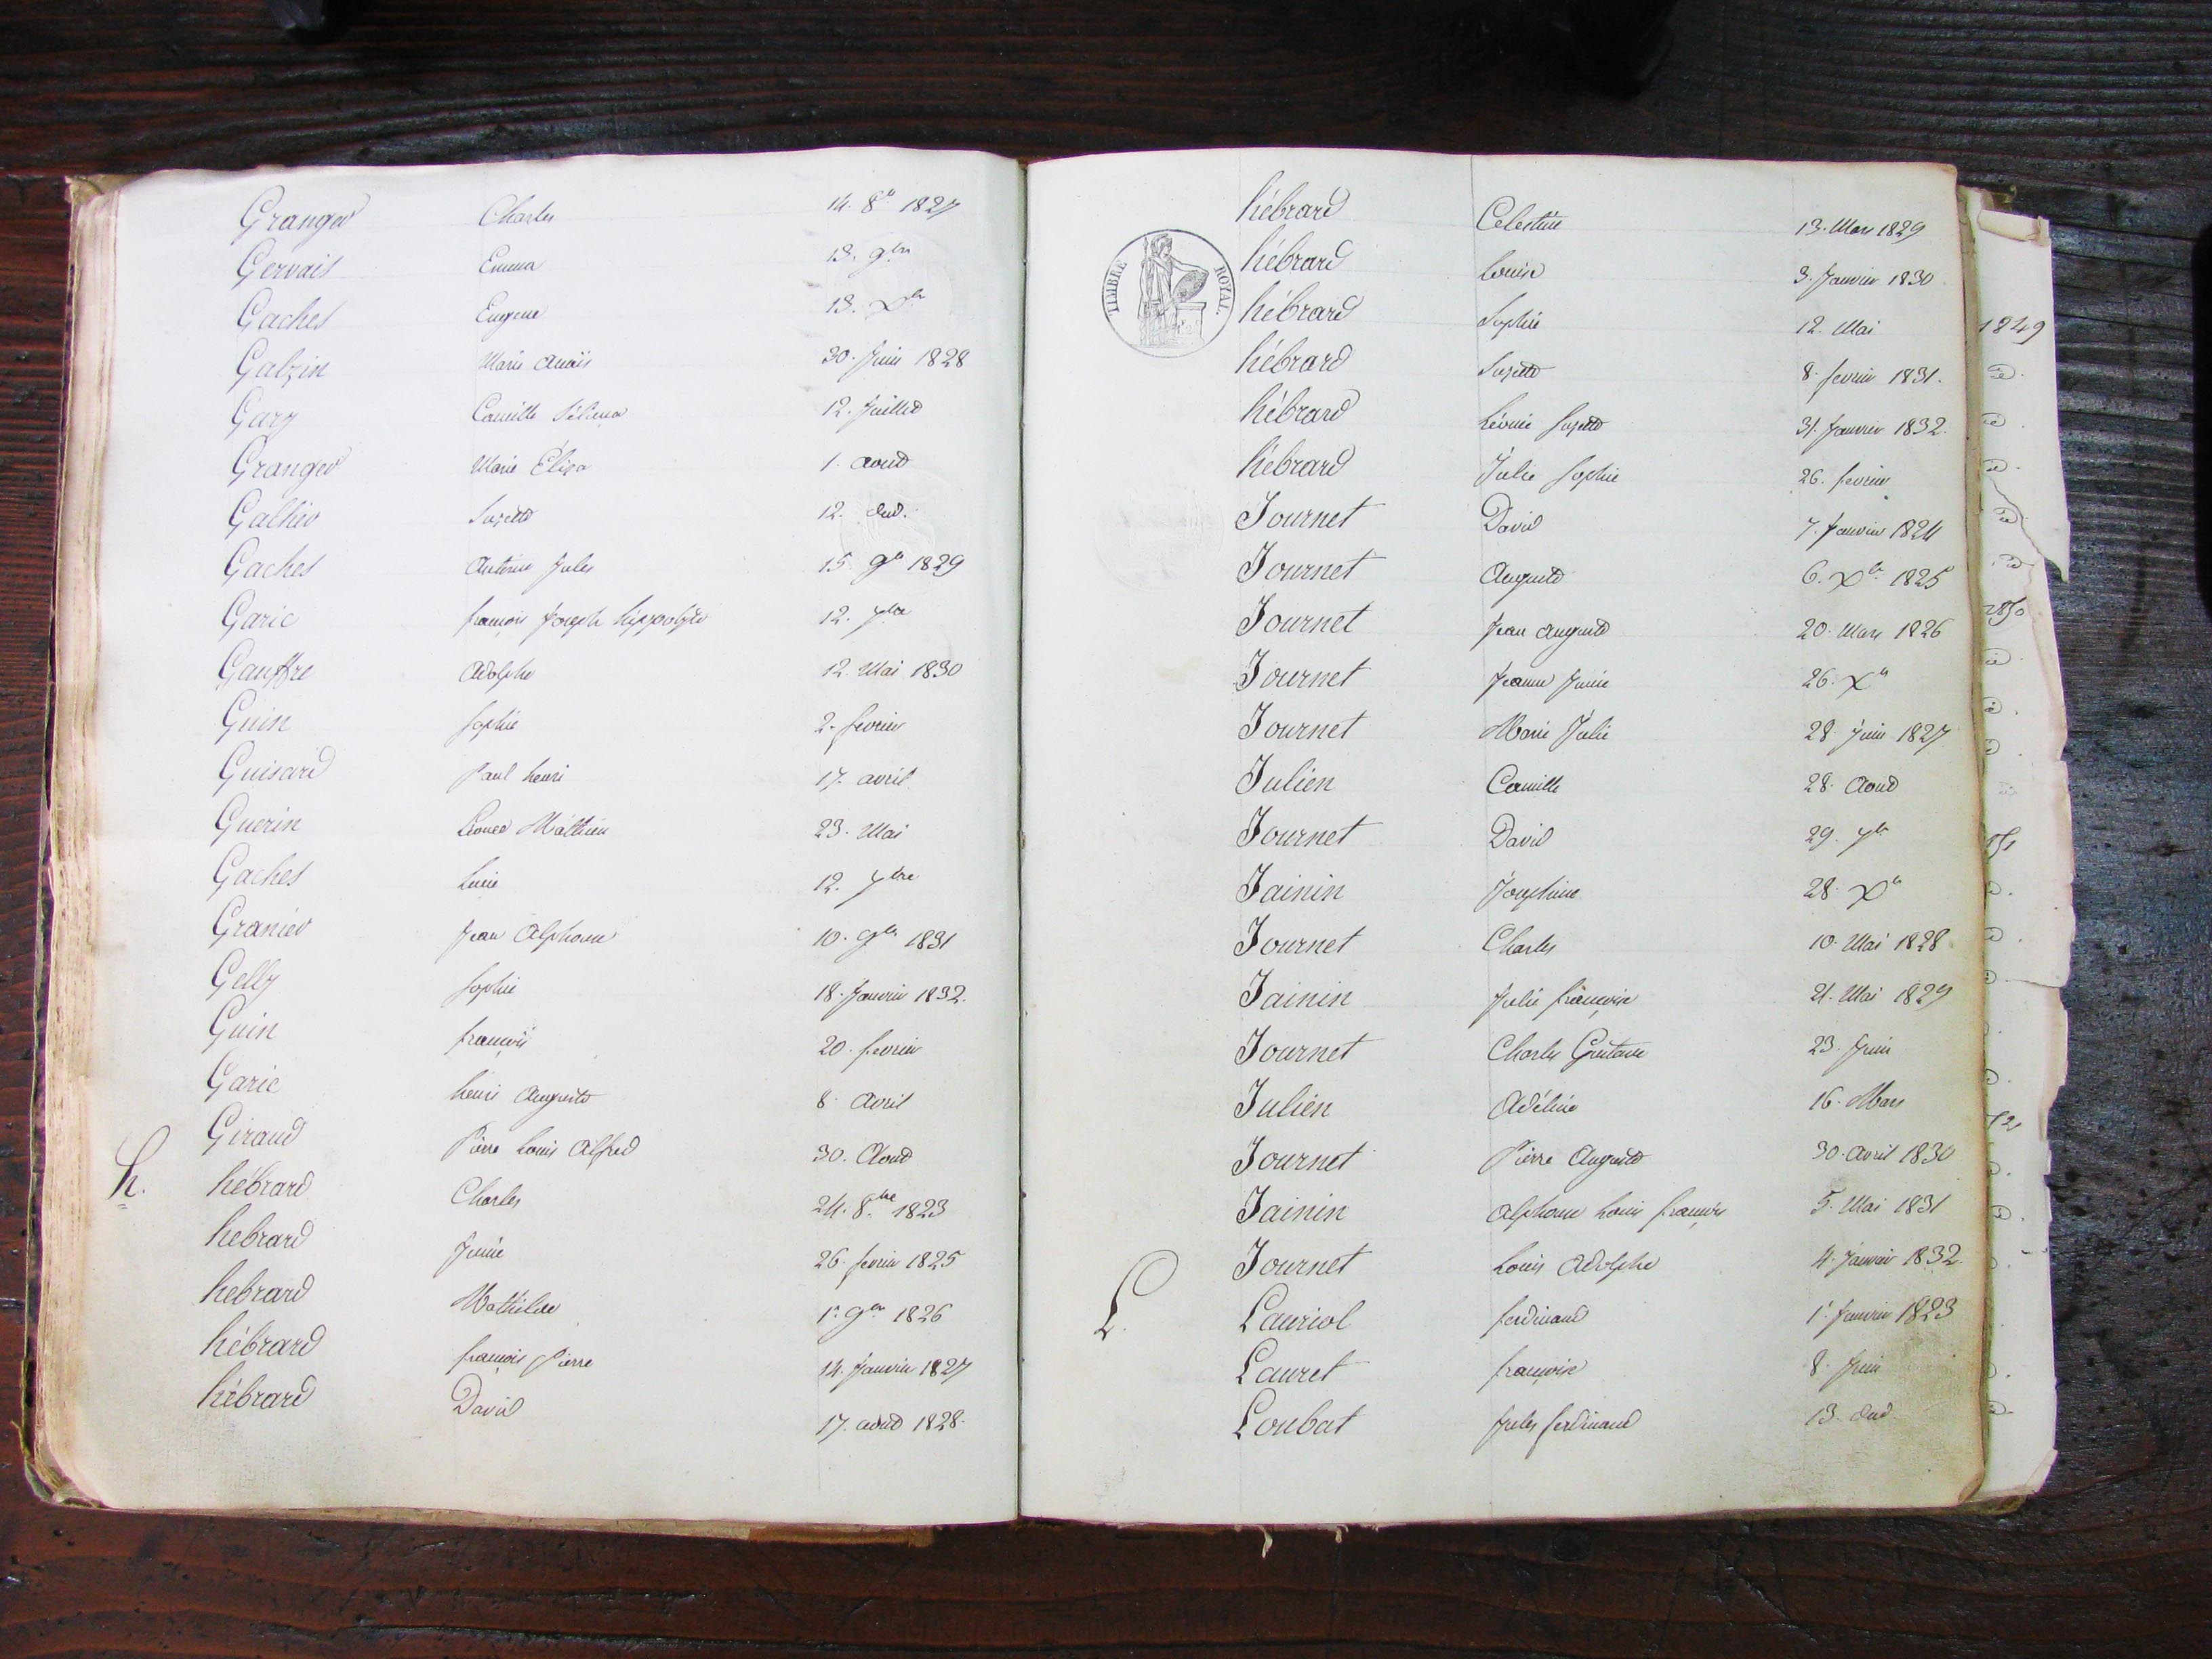 Granger Charles 14. 8bre 1827
Gervais Emma 13. 9bre
Gaches Eugene 13. Xbre
Galzin Marie Anaïs 30. Juin 1828
Gary Camille 12. Juillet
Granger Marie Éliza 1. aout
Galhier Suzette 12. dud.
Gaches Antoine Jules 15. 9bre 1829
Garic françois Joseph hippolyte 12. 7bre
Gauffre Adolphe 12. Mai 1830
Guin Sophie 2. fevrier
Guisard Paul henri 17. avril
Guerin Mathieu 23. Mai
Gaches Lucie 12. 7bre
Granier Jean Alphonse 10. 9bre 1831
Gelly Sophie 18. Janvier 1832.
Guin françois 20. fevrier
Garic henri Auguste 8. Avril
Giraud Pierre Louis Alfred 30. Aout
h.
hébrard Charles 24. 8bre 1823
hebrard Junie 26. fevrier 1825
hebrard Mathilde 1er 9bre 1826
hébrard françois Pierre 14. Janvier 1827
hébrard David 17. aout 1828.
TIMBRE ROYAL.
hébrard Celestine 13. Mars 1829
hébrard Louise 3. Janvier 1830
hébrard Sophie 12. Mai
hébrard Suzette 8. fevrier 1831.
hébrard Léonie Suzette 31. Janvier 1832.
hébrard Julie Sophie 26. fevrier
Journet David 7. Janvier 1824
Journet Auguste 6. Xbre 1825
Journet Jean Auguste 20. Mars 1826
Journet Jeanne Junie 26. Xbre
Journet Marie Julie 28. Juin 1827
Julien Camille 28. Aout
Journet David 29. 7bre
Jainin Josephine 28. Xbre
Journet Charles 10. Mai 1828
Jainin Julie françoise 21. Mai 1829
Journet Charles Gustave 23. Juin
Julien Adéline 16. Mars
Journet Pierre Auguste 30. Avril 1830
Jainin Alphonse Louis françois 5. Mai 1831
Journet Louis Adolphe 4. Janvier 1832.
L.
Lauriol ferdinand 1er Janvier 1823
Lauret françoise 8. Juin
Loubat Jules ferdinand 13. dud.
1849